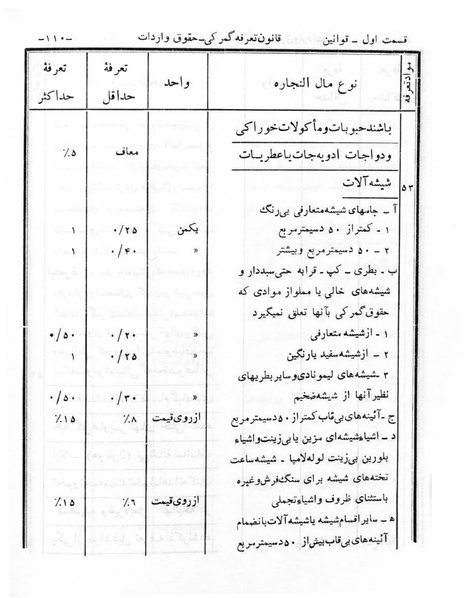 قسمت اول ـ قوانین قانون تعرفه گمرکی ـ حقوق واردات ـ۱۱۰ـ
مواد تعرفه نوع مال التجاره واحد تعرفهٔ حداقل تعرفهٔ حداکثر
باشند حبوبات و مأکولات خوراکی
و دواجات ادویه‌جات یا عطریات معاف ۵٪
۵۳ شیشه‌آلات
آ ـ جامهای شیشه متعارفی بی‌رنگ
۱ ـ کمتر از ۵۰ دسیمتر مربع یکمن ۰/۲۵ ۱
۲ ـ ۵۰ دسیمتر مربع و بیشتر » ۰/۴۰ ۱
ب ـ بطری ـ کپ ـ قرابه حتی سبددار و
شیشه‌های خالی یا مملو از موادی که
حقوق گمرکی بآنها تعلق نمیگیرد
۱ ـ از شیشه متعارفی » ۰/۲۰ ۰/۵۰
۲ ـ از شیشه سفید یا رنگین » ۰/۲۵ ۱
۳ ـ شیشه‌های لیمونادی و سایر بطریهای
نظیر آنها از شیشه ضخیم » ۰/۳۰ ۰/۵۰
ج ـ آئینه‌های بی‌قاب کمتر از ۵۰ دسیمتر مربع از روی قیمت ۸٪ ۱۵٪
د ـ اشیاء شیشه‌ای مزین یا بی‌زینت و اشیاء
بلورین بی‌زینت لوله لامپا ـ شیشه ساعت
تخته‌های شیشه برای سنگ‌فرش و غیره
باستثنای ظروف و اشیاء تجملی از روی قیمت ۶٪ ۱۵٪
ه‍ ـ سایر اقسام شیشه یا شیشه آلات بانضمام
آئینه‌های بی‌قاب بیش از ۵۰ دسیمتر مربع